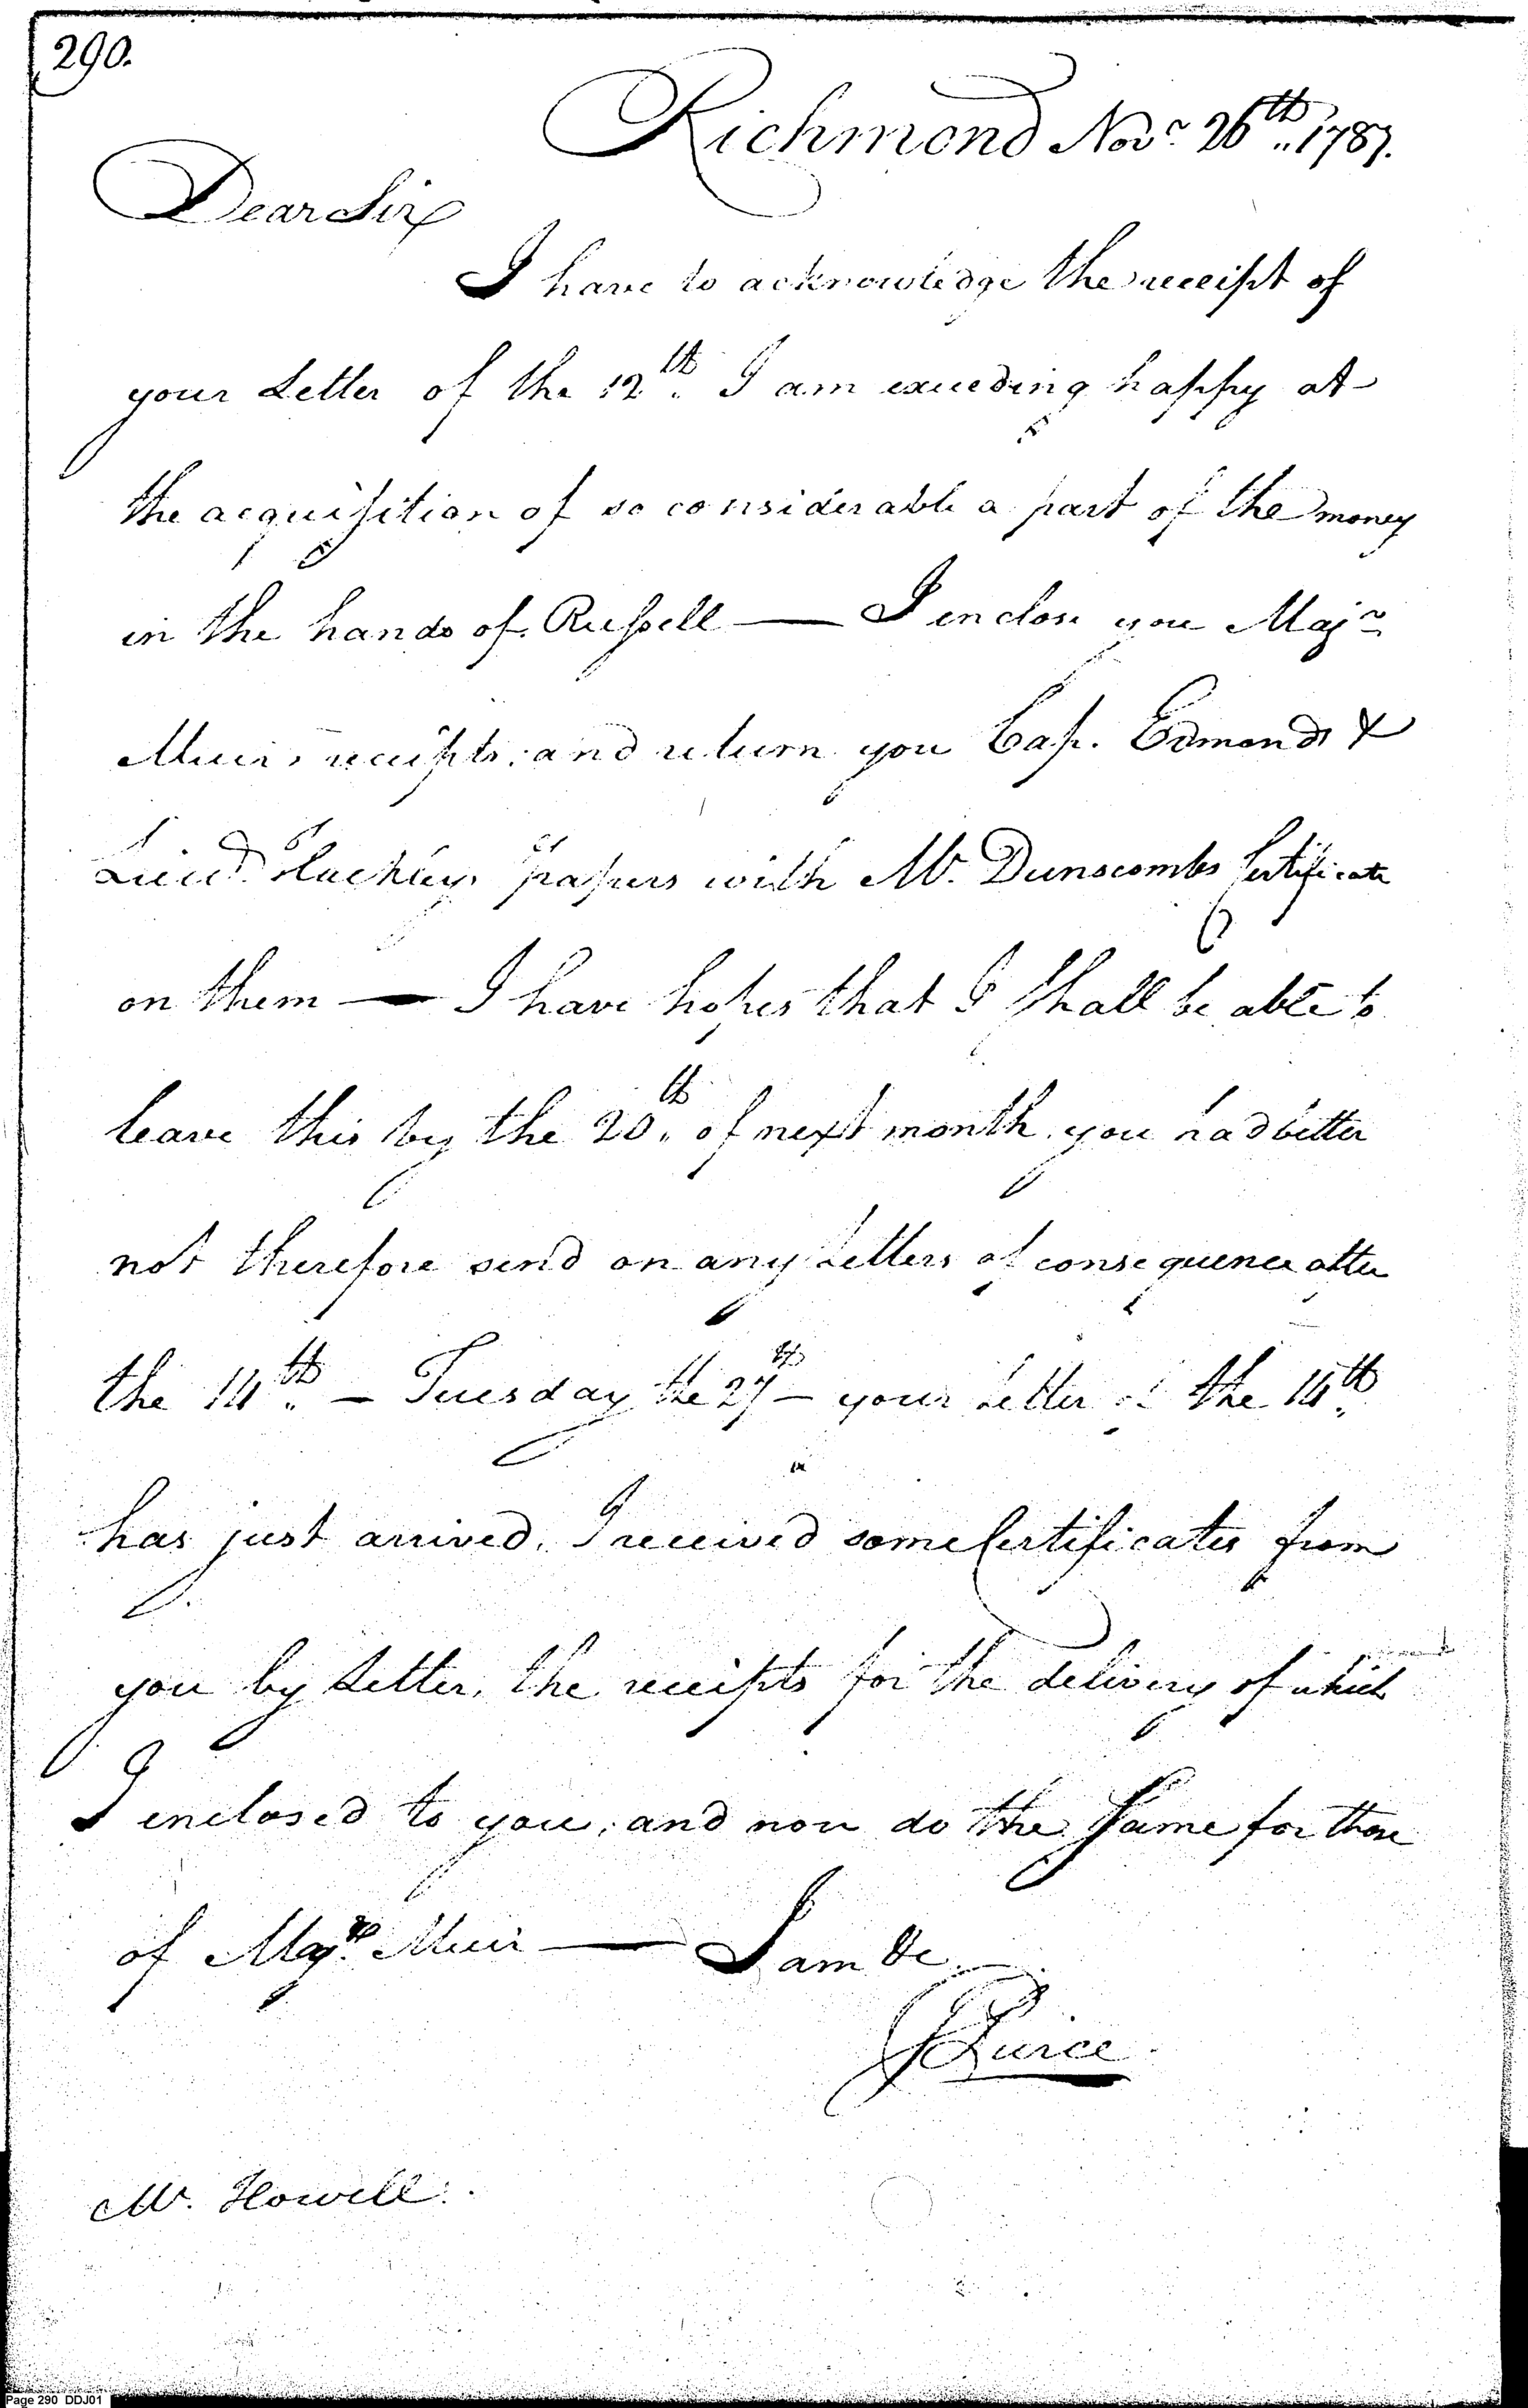 290.
Richmond Novr. 26th 1787.
Dear Sir
I have to acknowledge the receipt of
your Letter of the 12th. I am exceeding happy at
the acquisition of so considerable a part of the money
in the hands of Russell — I enclose you Majr.
Muirs receipts, and return you Cap. Edmonds &
Lieut. papers with Mr. Dunscombs Certificate
on them — I have hopes that I shall be able to
leave this by the 20th. of next month, you had better
not therefore send on any Letters of consequence after
the 14th. — Tuesday the 27th — your Letter of the 14th.
has just arrived, I received some Certificates from
you by Letter, the receipts for the delivery of which
I enclosed to you, and now do the same for those
of Majr. Muir — I am &c.
JPierce
Mr. Howell.
Page 290 DDJ01